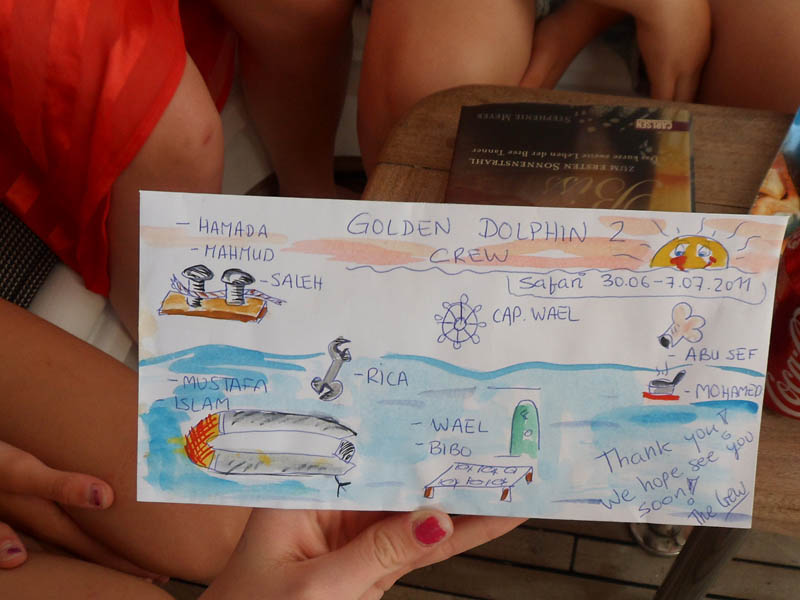 STEPHENIE MEYER
CARLSEN
Das kurze zweite Leben der Bree Tanner
ZUM ERSTEN SONNENSTRAHL
Biss
- HAMADA
- MAHMUD
- SALEH
GOLDEN DOLPHIN 2
CREW
Safari 30.06-7.07.2011
CAP. WAEL
- ABU SEF
- MOHAMED
- RICA
- MUSTAFA
ISLAM
- WAEL
- BIBO
Thank you!
We hope see you
soon!
The Crew
Coca-Cola